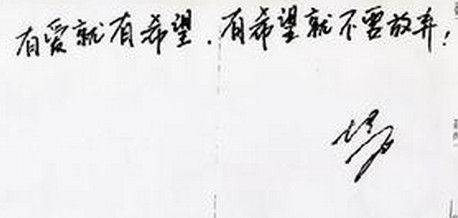 有爱就有希望，有希望就不要放弃！